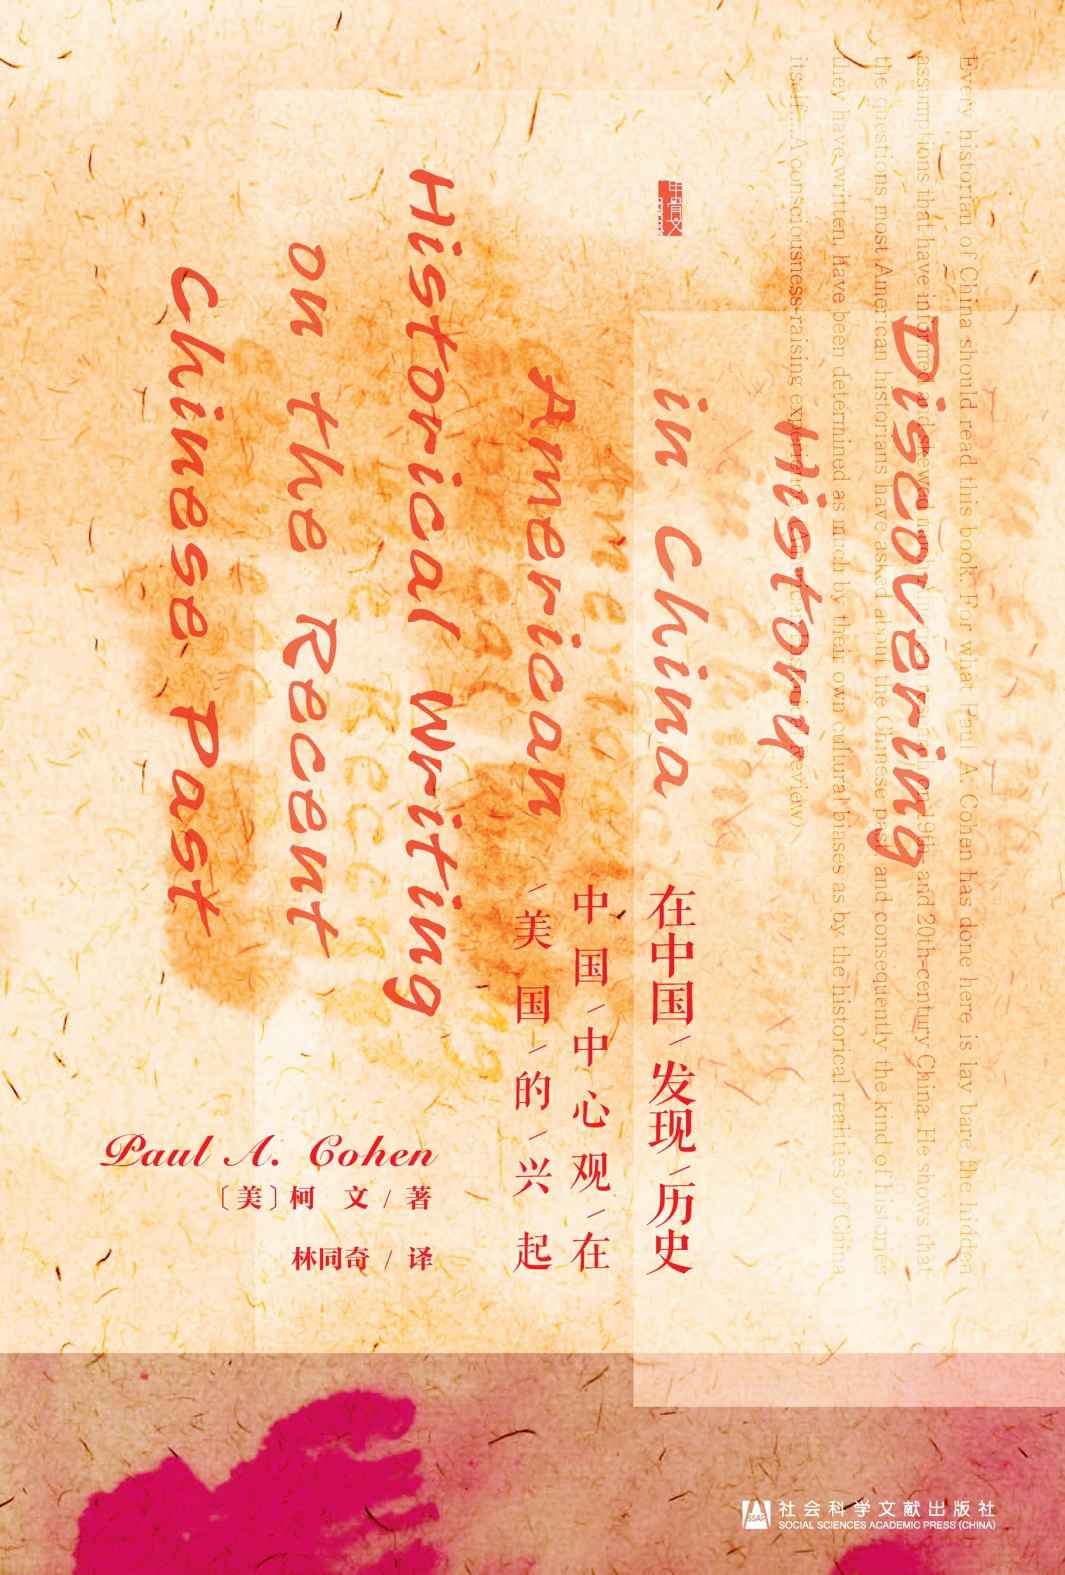 Every historian of China should read this book. For what Paul A. Cohen has done here is lay bare the hidden
assumptions that have informed and skewed 19th- and 20th-century China. He shows that
the questions most American historians have asked about the Chinese past and consequently the kind of histories
they have written, have been determined as much by their own cultural biases as by the historical realities of China
itself....A consciousness-raising
Discovering
History
in China
American
Historical Writing
on the Recent
Chinese Past
甲骨文
在中国/发现/历史
中国/中心观/在
/美国/的/兴起
Paul A. Cohen
〔美〕柯 文/著
林同奇/译
社会科学文献出版社
SOCIAL SCIENCES ACADEMIC PRESS (CHINA)